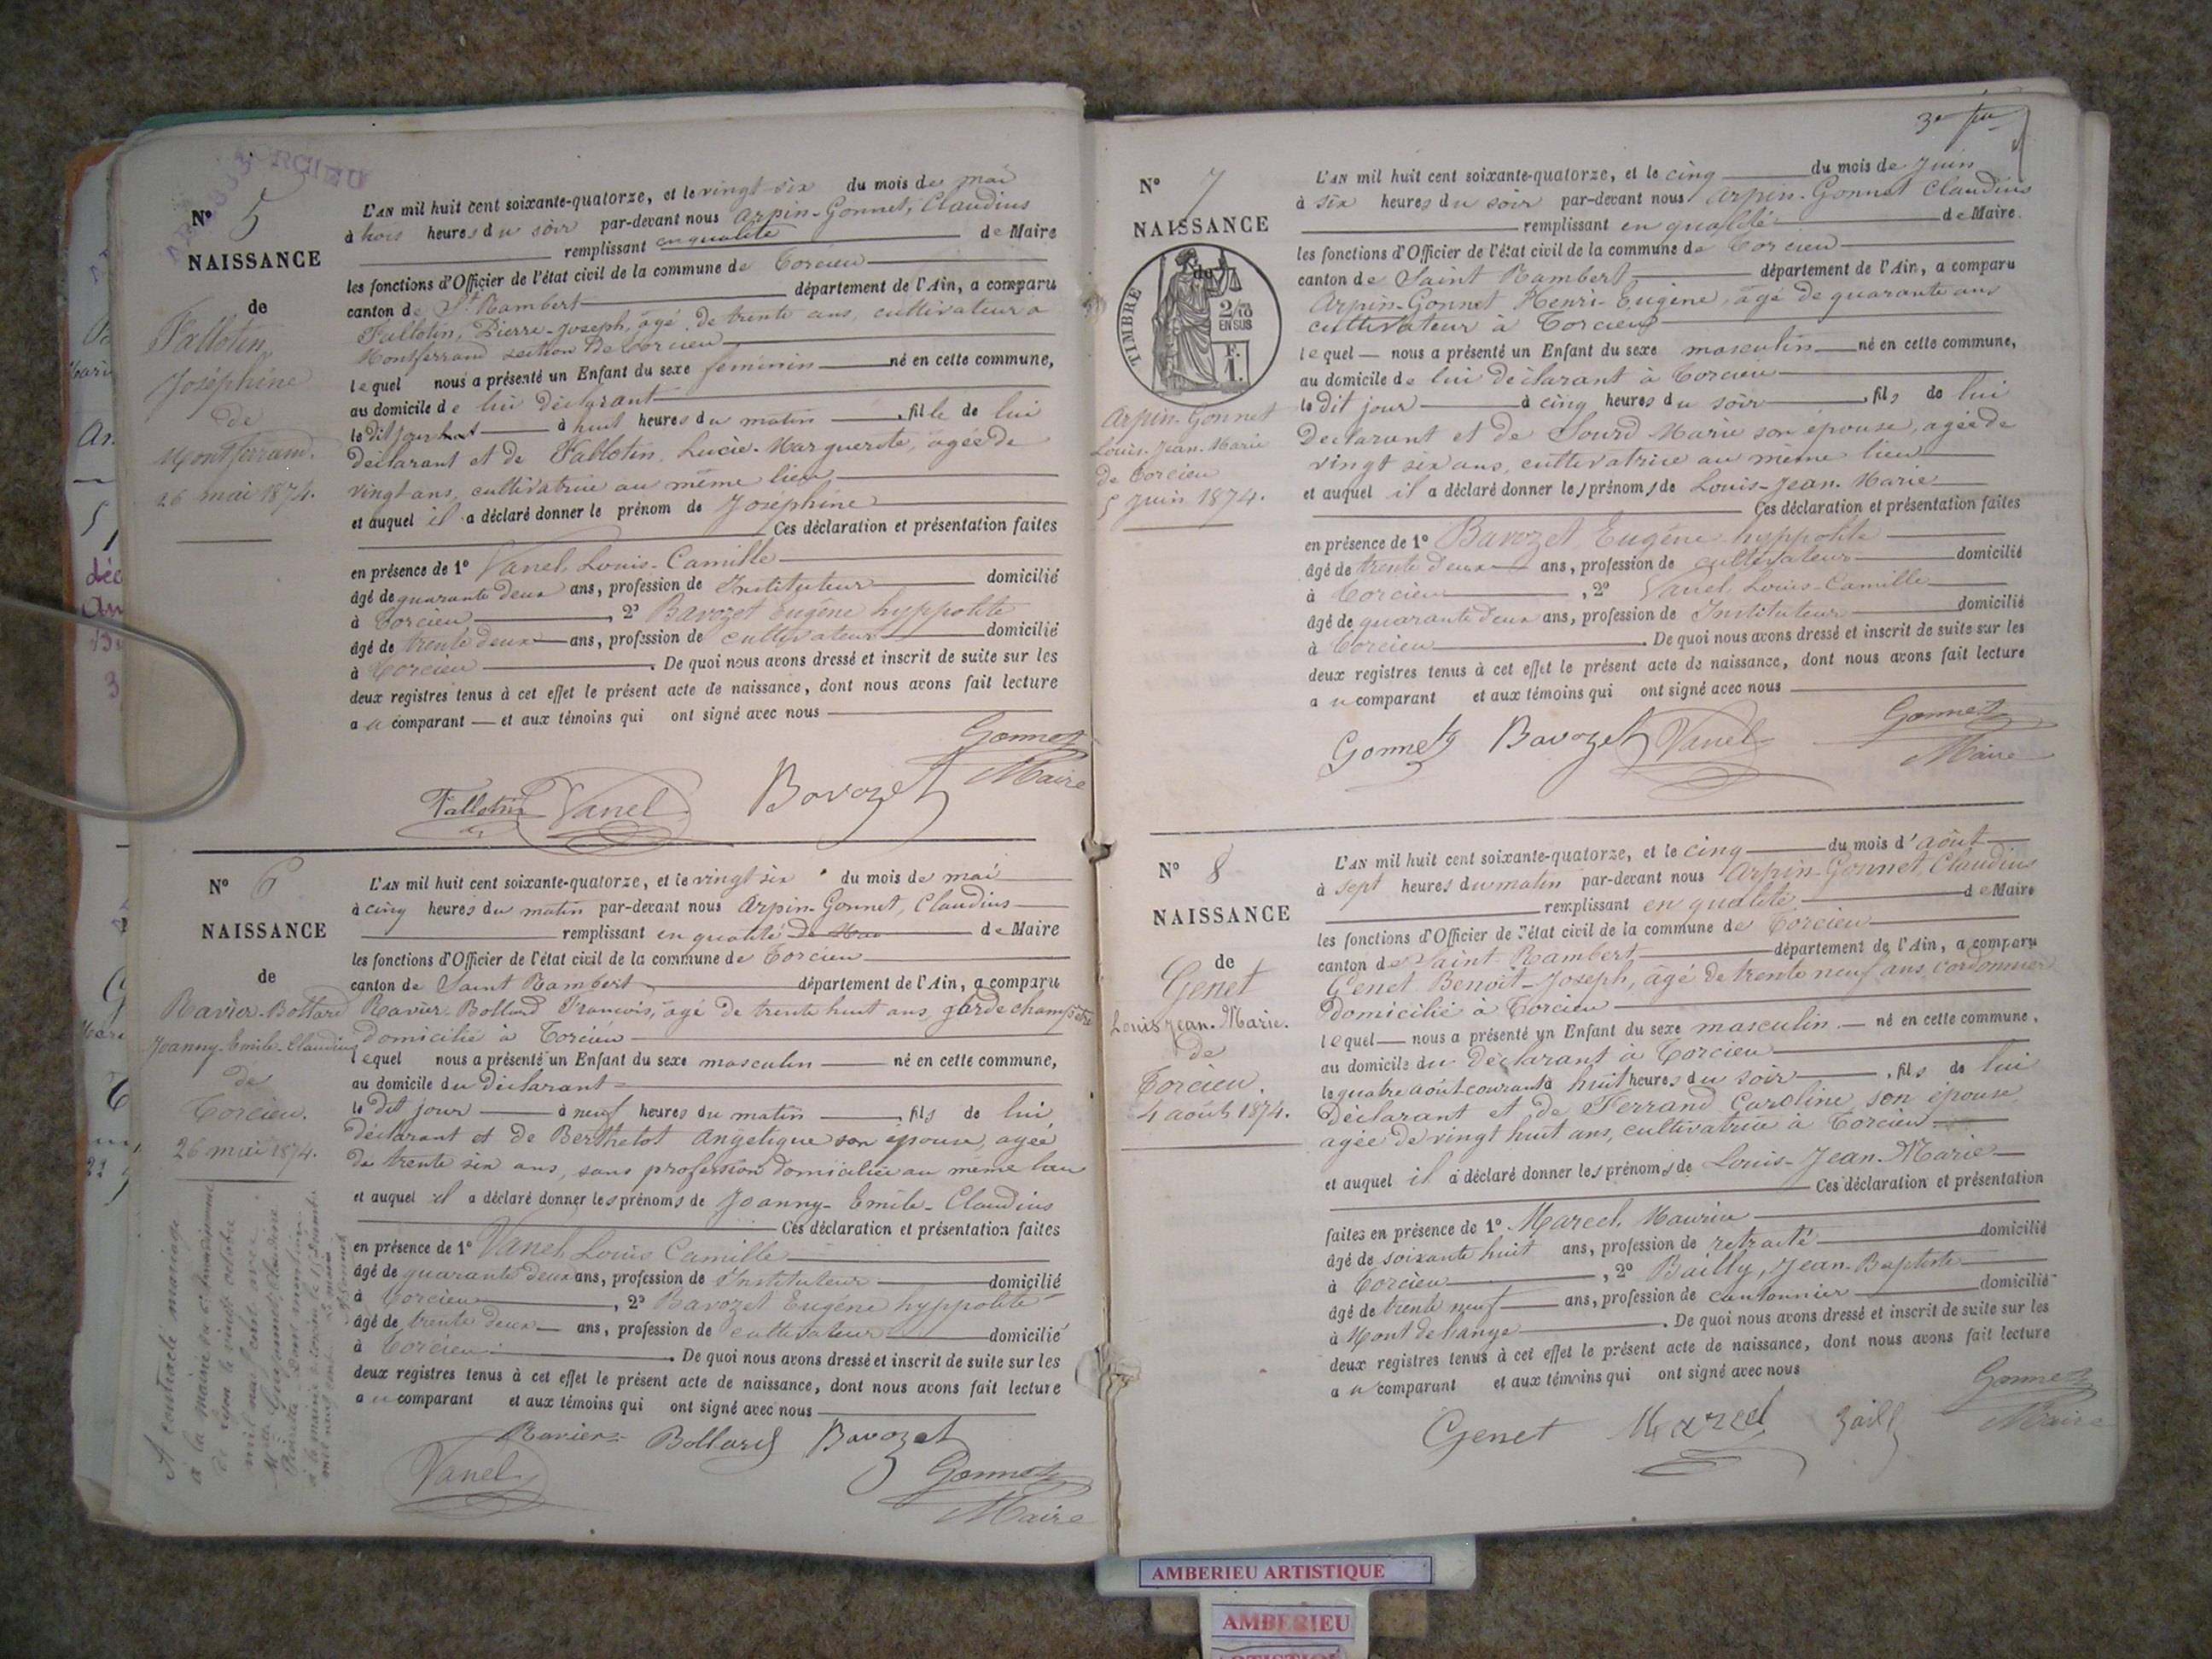 TORCIEU
N° 5
NAISSANCE
de
Fallotin,
Joséphine
de
Montferrand.
26 mai 1874.
L'AN mil huit cent soixante-quatorze, et le vingt-six du mois de mai
à trois heures du soir par-devant nous Arpin-Gonnet, Claudius
remplissant en qualité de Maire
les fonctions d'Officier de l'état civil de la commune de Torcieu
canton de St Rambert département de l'Ain, a comparu
Fallotin, Pierre-Joseph, âgé de trente ans, cultivateur à
Montferrand section de Torcieu
lequel nous a présenté un Enfant du sexe féminin né en cette commune,
au domicile de lui déclarant
le dit jour à huit heures du matin, fille de lui
déclarant et de Fallotin, Lucie-Marguerite, âgée de
vingt ans, cultivatrice au même lieu
et auquel il a déclaré donner le prénom de Joséphine
Ces déclaration et présentation faites
en présence de 1° Vanel Louis-Camille
âgé de quarante deux ans, profession de Instituteur domicilié
à Torcieu, 2° Bavozet Eugène hyppolite
âgé de trente deux ans, profession de cultivateur domicilié
à Torcieu. De quoi nous avons dressé et inscrit de suite sur les
deux registres tenus à cet effet le présent acte de naissance, dont nous avons fait lecture
au comparant et aux témoins qui ont signé avec nous
Gonnet
Maire
Fallotin Vanel Bavozet
N° 6
NAISSANCE
de
Ravier-Bollard
Joanny-Emile-Claudius
de
Torcieu.
26 mai 1874.
A contracté mariage
à la mairie du
de Lyon le vingt octobre
mil neuf cent
L'AN mil huit cent soixante-quatorze, et le vingt six du mois de mai
à cinq heures du matin par-devant nous Arpin-Gonnet, Claudius
remplissant en qualité de Maire
les fonctions d'Officier de l'état civil de la commune de Torcieu
canton de Saint Rambert département de l'Ain, a comparu
Ravier-Bollard François, âgé de trente huit ans, garde champêtre
domicilié à Torcieu
lequel nous a présenté un Enfant du sexe masculin né en cette commune,
au domicile du déclarant
le dit jour à neuf heures du matin, fils de lui
déclarant et de Berthelot Angélique son épouse, agée
de trente six ans, sans profession domiciliée au même lieu
et auquel il a déclaré donner les prénoms de Joanny-Emile-Claudius
Ces déclaration et présentation faites
en présence de 1° Vanel Louis Camille
âgé de quarante deux ans, profession de Instituteur domicilié
à Torcieu, 2° Bavozet Eugène hyppolite
âgé de trente deux ans, profession de cultivateur domicilié
à Torcieu. De quoi nous avons dressé et inscrit de suite sur les
deux registres tenus à cet effet le présent acte de naissance, dont nous avons fait lecture
au comparant et aux témoins qui ont signé avec nous
Ravier-Bollard Bavozet
Vanel Gonnet
Maire
N° 7
NAISSANCE
de
TIMBRE
2/10
EN SUS
F.
1.
Arpin-Gonnet
Louis-Jean-Marie
de Torcieu
5 Juin 1874.
L'AN mil huit cent soixante-quatorze, et le cinq du mois de Juin
à six heures du soir par-devant nous Arpin-Gonnet Claudius
remplissant en qualité de Maire.
les fonctions d'Officier de l'état civil de la commune de Torcieu
canton de Saint Rambert département de l'Ain, a comparu
Arpin-Gonnet Henri-Eugène, âgé de quarante ans
cultivateur à Torcieu
lequel nous a présenté un Enfant du sexe masculin né en cette commune,
au domicile de lui déclarant à Torcieu
le dit jour à cinq heures du soir, fils de lui
déclarant et de Sourd Marie son épouse, agée de
vingt six ans, cultivatrice au même lieu
et auquel il a déclaré donner les prénoms de Louis-Jean-Marie
Ces déclaration et présentation faites
en présence de 1° Bavozet Eugène hyppolite
âgé de trente deux ans, profession de cultivateur domicilié
à Torcieu, 2° Vanel Louis-Camille
âgé de quarante deux ans, profession de Instituteur domicilié
à Torcieu. De quoi nous avons dressé et inscrit de suite sur les
deux registres tenus à cet effet le présent acte de naissance, dont nous avons fait lecture
au comparant et aux témoins qui ont signé avec nous
Gonnet Bavozet Vanel Gonnet
Maire
N° 8
NAISSANCE
de
Genet
Louis Jean-Marie.
de
Torcieu.
4 août 1874.
L'AN mil huit cent soixante-quatorze, et le cinq du mois d'août
à sept heures du matin par-devant nous Arpin-Gonnet, Claudius
remplissant en qualité de Maire
les fonctions d'Officier de l'état civil de la commune de Torcieu
canton de Saint-Rambert département de l'Ain, a comparu
Genet Benoît-Joseph, âgé de trente neuf ans, cordonnier
domicilié à Torcieu
lequel nous a présenté un Enfant du sexe masculin né en cette commune,
au domicile du déclarant à Torcieu
le quatre août courant à huit heures du soir, fils de lui
déclarant et de Ferrand Caroline son épouse,
agée de vingt huit ans, cultivatrice à Torcieu
et auquel il a déclaré donner les prénoms de Louis-Jean-Marie
Ces déclaration et présentation
faites en présence de 1° Marcel Maurice
âgé de soixante huit ans, profession de retraité domicilié
à Torcieu, 2° Bailly, Jean-Baptiste
âgé de trente neuf ans, profession de cantonnier domicilié
à Mont de lange. De quoi nous avons dressé et inscrit de suite sur les
deux registres tenus à cet effet le présent acte de naissance, dont nous avons fait lecture
au comparant et aux témoins qui ont signé avec nous
Genet Marcel Bailly Gonnet
Maire
AMBERIEU ARTISTIQUE
AMBERIEU
ARTISTIQUE